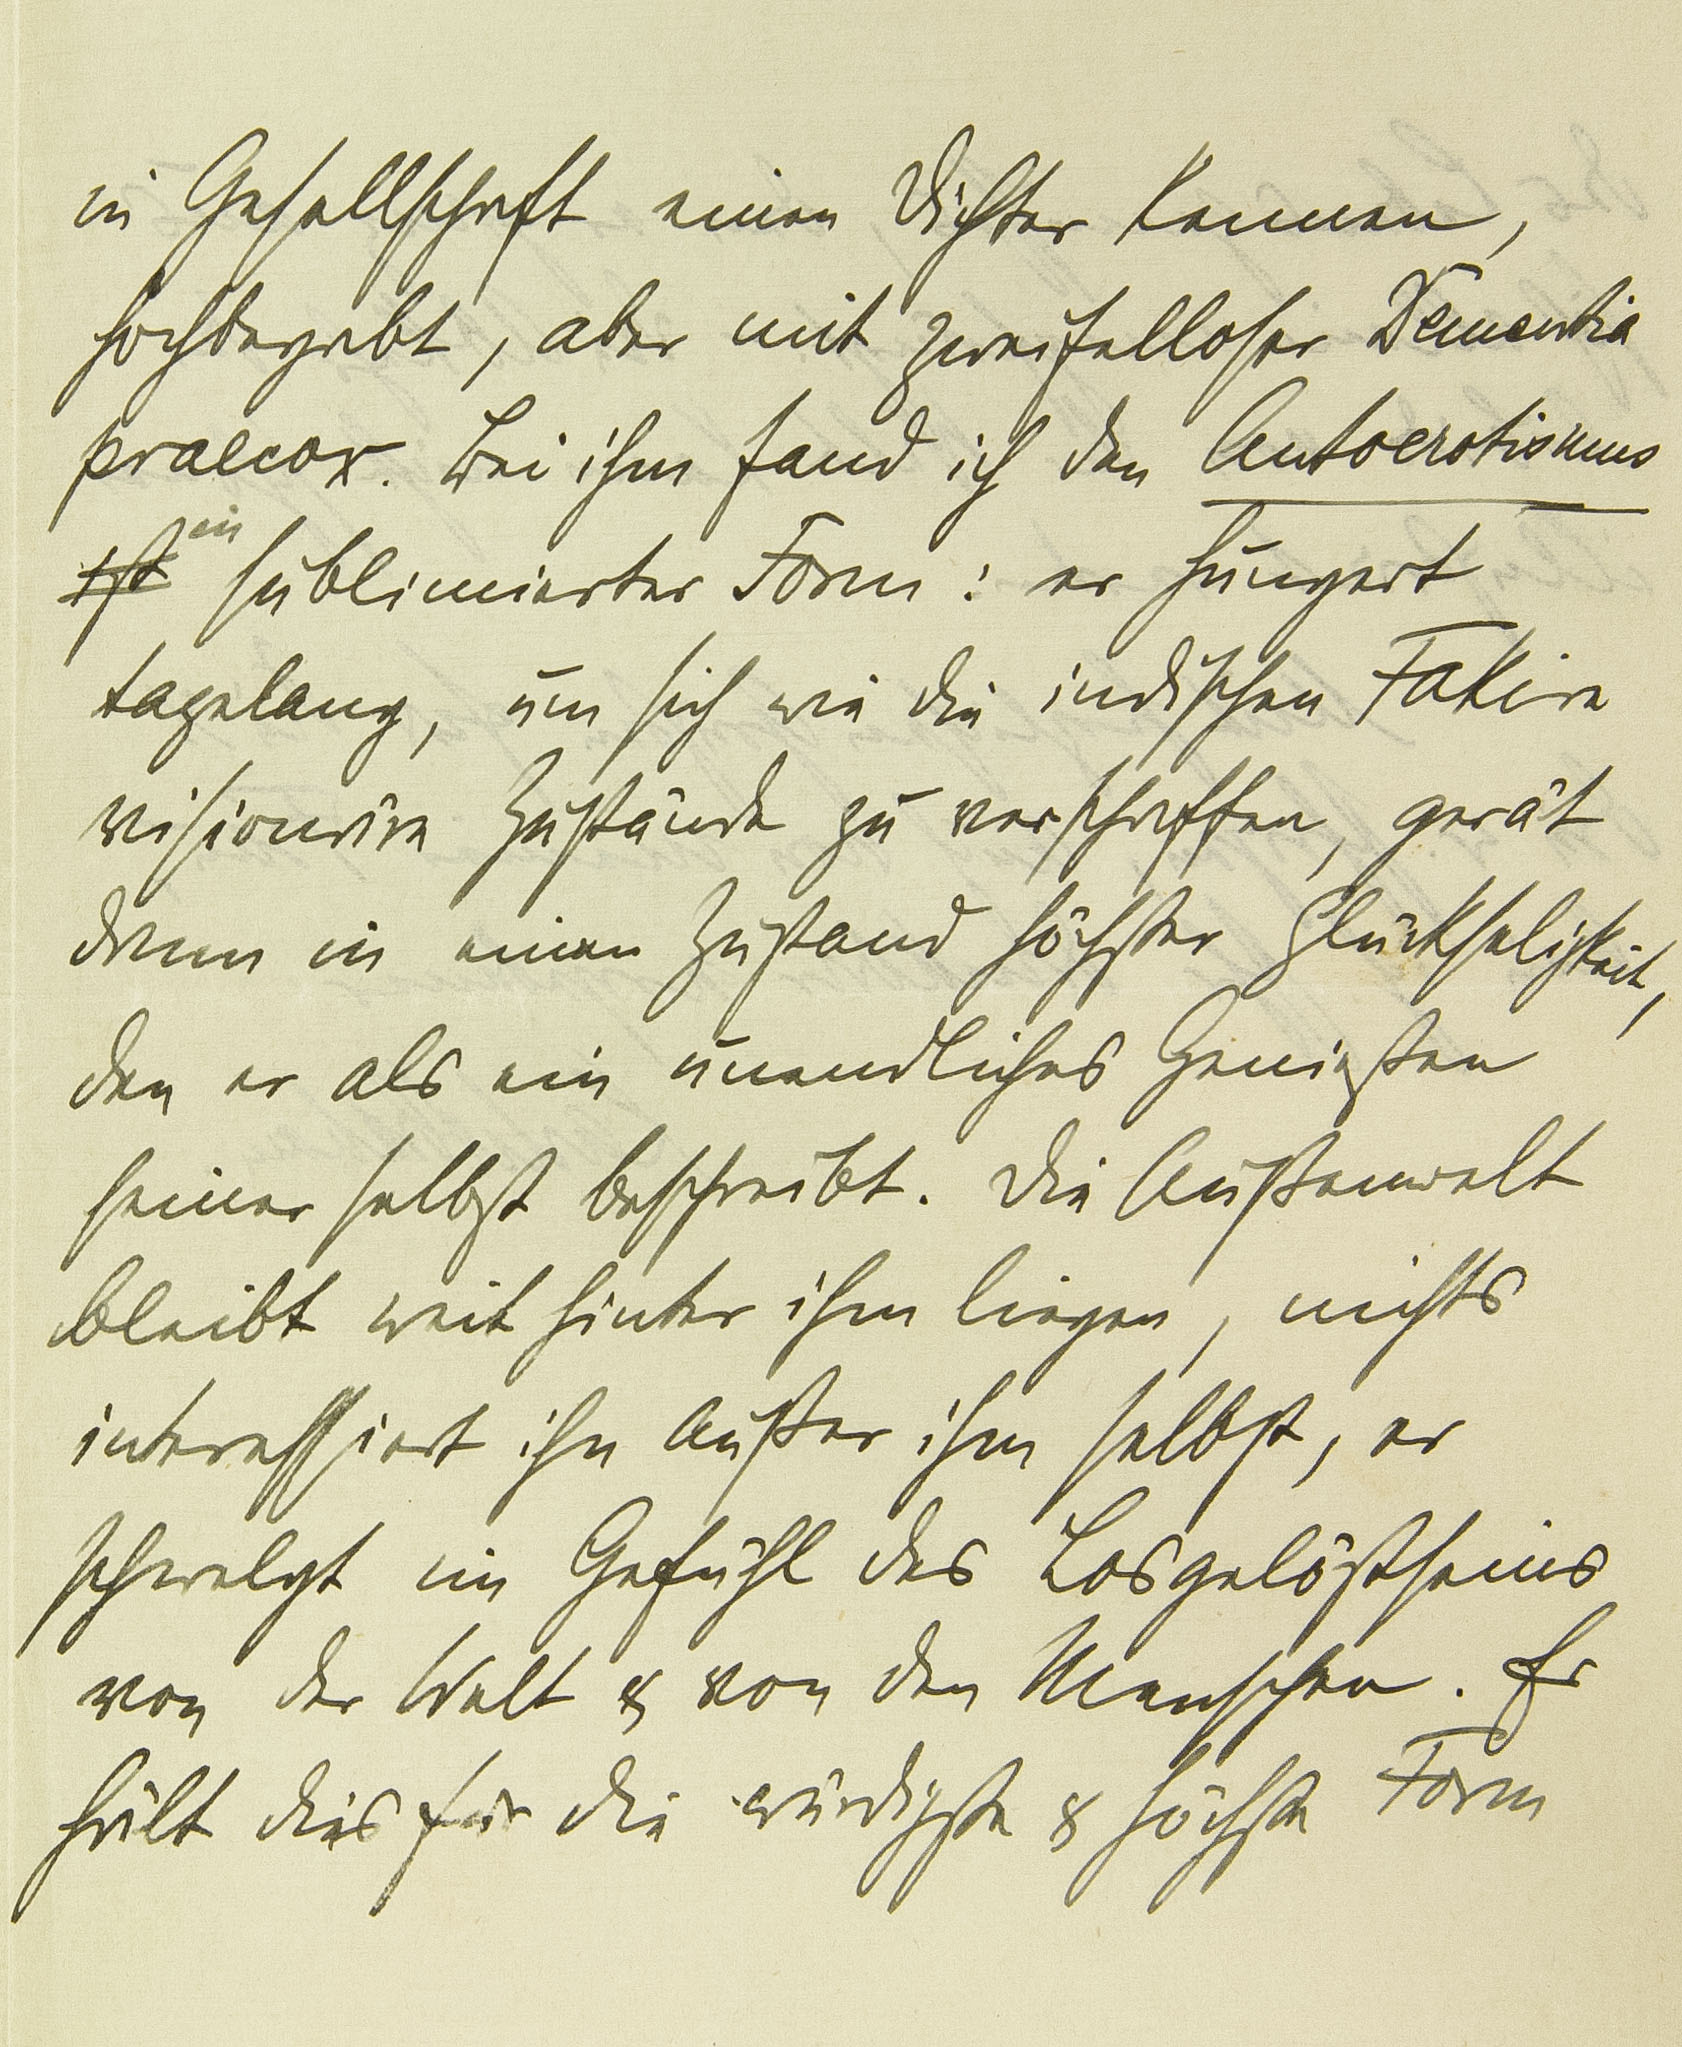 in Gesellschaft einen Dichter kennen,
hochbegabt, aber mit zweifelloser Dementia
praecox. Bei ihm fand ich den Autoerotismus
ist in sublimierter Form: er hungert
tagelang, um sich wie die indischen Fakire
visionäre Zustände zu verschaffen, gerät
dann in einen Zustand höchster Glückseligkeit,
den er als ein unendliches Genießen
seiner selbst beschreibt. Die Außenwelt
bleibt weit hinter ihm liegen, nichts
interessiert ihn außer ihm selbst, er
schwelgt im Gefühl des Losgelöstseins
von der Welt & von den Menschen. Er
hält dies für die würdigste & höchste Form